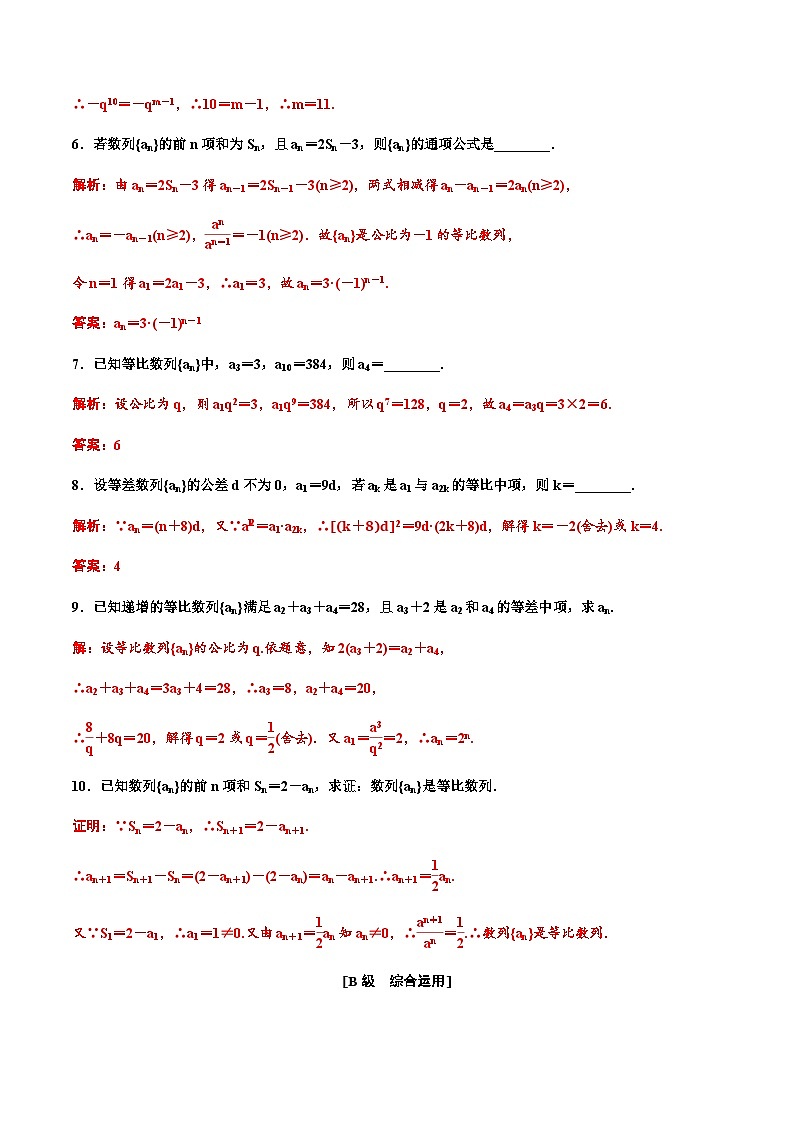 ∴－q¹⁰＝－qᵐ⁻¹，∴10＝m－1，∴m＝11.
6．若数列{aₙ}的前n项和为Sₙ，且aₙ＝2Sₙ－3，则{aₙ}的通项公式是________．
解析：由aₙ＝2Sₙ－3得aₙ₋₁＝2Sₙ₋₁－3(n≥2)，两式相减得aₙ－aₙ₋₁＝2aₙ(n≥2)，
∴aₙ＝－aₙ₋₁(n≥2)，aₙ/aₙ₋₁＝－1(n≥2)．故{aₙ}是公比为－1的等比数列，
令n＝1得a₁＝2a₁－3，∴a₁＝3，故aₙ＝3·(－1)ⁿ⁻¹.
答案：aₙ＝3·(－1)ⁿ⁻¹
7．已知等比数列{aₙ}中，a₃＝3，a₁₀＝384，则a₄＝________.
解析：设公比为q，则a₁q²＝3，a₁q⁹＝384，所以q⁷＝128，q＝2，故a₄＝a₃q＝3×2＝6.
答案：6
8．设等差数列{aₙ}的公差d不为0，a₁＝9d，若aₖ是a₁与a₂ₖ的等比中项，则k＝________.
解析：∵aₙ＝(n＋8)d，又∵a²ₖ＝a₁·a₂ₖ，∴[(k＋8)d]²＝9d·(2k＋8)d，解得k＝－2(舍去)或k＝4.
答案：4
9．已知递增的等比数列{aₙ}满足a₂＋a₃＋a₄＝28，且a₃＋2是a₂和a₄的等差中项，求aₙ.
解：设等比数列{aₙ}的公比为q.依题意，知2(a₃＋2)＝a₂＋a₄，
∴a₂＋a₃＋a₄＝3a₃＋4＝28，∴a₃＝8，a₂＋a₄＝20，
∴8/q＋8q＝20，解得q＝2或q＝1/2(舍去)．又a₁＝a₃/q²＝2，∴aₙ＝2ⁿ.
10．已知数列{aₙ}的前n项和Sₙ＝2－aₙ，求证：数列{aₙ}是等比数列．
证明：∵Sₙ＝2－aₙ，∴Sₙ₊₁＝2－aₙ₊₁.
∴aₙ₊₁＝Sₙ₊₁－Sₙ＝(2－aₙ₊₁)－(2－aₙ)＝aₙ－aₙ₊₁.∴aₙ₊₁＝1/2aₙ.
又∵S₁＝2－a₁，∴a₁＝1≠0.又由aₙ₊₁＝1/2aₙ知aₙ≠0，∴aₙ₊₁/aₙ＝1/2.∴数列{aₙ}是等比数列．
[B级　综合运用]